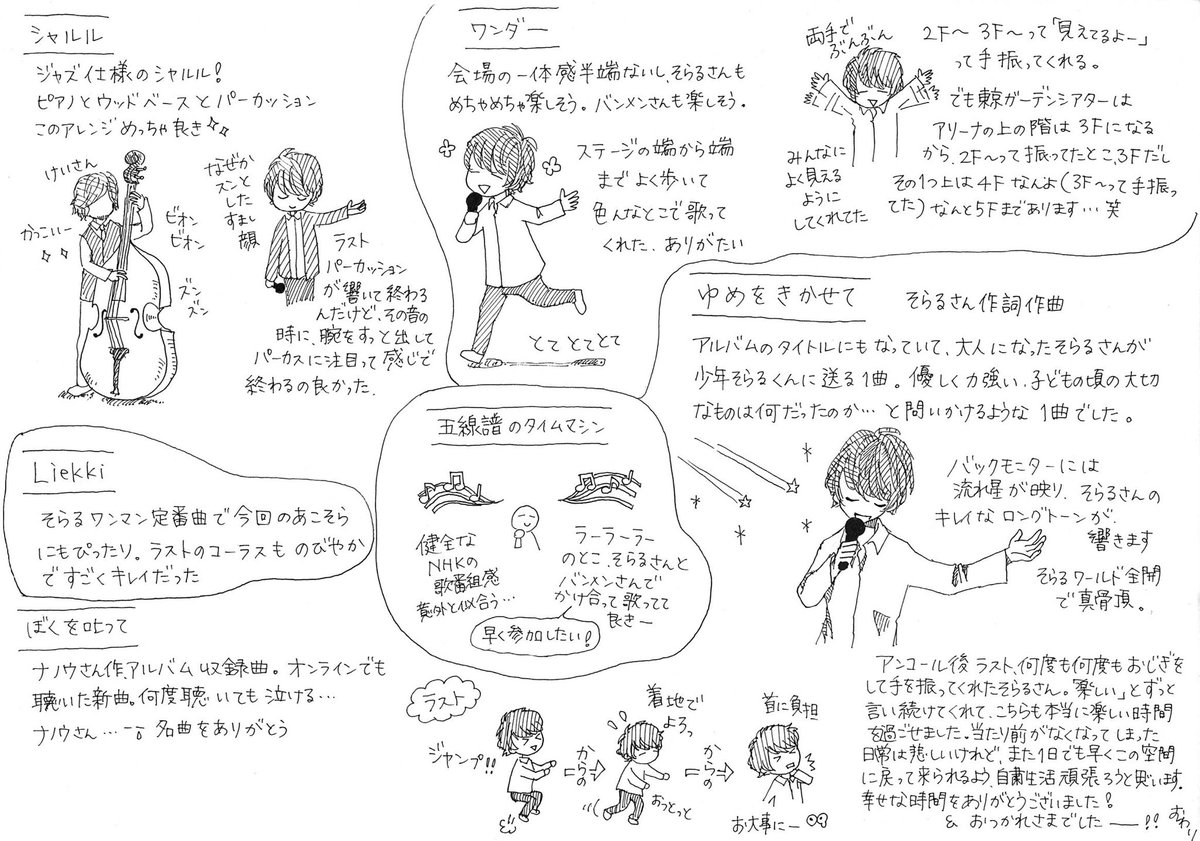 シャルル
ジャズ仕様のシャルル!
ピアノとウッドベースとパーカッション
このアレンジめっちゃ良き
けいさん
かっこいー
ビオン
ビオン
ズン
ズン
なぜか
スンと
した
すまし
顔
ラスト
パーカッション
が響いて終わる
んだけど、その音の
時に、腕をすっと出して
パーカスに注目って感じで
終わるの良かった.
ワンダー
会場の一体感半端ないし、そらるさんも
めちゃめちゃ楽しそう。バンメンさんも楽しそう。
ステージの端から端
まで よく歩いて
色んなとこで歌って
くれた、ありがたい
とて とてとて
両手で
ぶんぶん
みんなに
よく見える
ように
してくれてた
2F〜 3F〜って「見えてるよー」
って手振ってくれる。
でも東京ガーデンシアターは
アリーナの上の階は3Fになる
から、2F〜って振ってたとこ、3Fだし
その1つ上は4Fなんよ(3F〜って手振っ
てた)なんと5Fまであります…笑
ゆめをきかせて
そらるさん作詞作曲
アルバムのタイトルにもなっていて、大人になったそらるさんが
少年そらるくんに送る1曲。優しく力強い、子どもの頃の大切
なものは何だったのか…と問いかけるような1曲でした。
バックモニターには
流れ星が映り、そらるさんの
キレイなロングトーンが、
響きます
そらるワールド全開
で真骨頂。
五線譜のタイムマシン
健全な
NHKの
歌番組感
意外と似合う…
ラーラーラー
のとこ、そらるさんと
バンメンさんで
かけ合って歌ってて
良きー
早く参加したい!
Liekki
そらるワンマン定番曲で今回のあこそら
にもぴったり。ラストのコーラスも のびやか
ですごくキレイだった
ぼくを叱って
ナノウさん作、アルバム収録曲。オンラインでも
聴いた新曲。何度聴いても泣ける…
ナノウさん… 名曲をありがとう
ラスト
ジャンプ!!
からの
着地で
よろっ
おっとっと
からの
首に負担
お大事にー
アンコール後ラスト、何度も何度もおじぎを
して手を振ってくれたそらるさん。「楽しい」とずっと
言い続けてくれて、こちらも本当に楽しい時間
を過ごせました。当たり前がなくなってしまった
日常は悲しいけれど、また1日でも早くこの空間
に戻って来られるよう、自粛生活頑張ろうと思います。
幸せな時間をありがとうございました!
& おつかれさまでした――!!
おわり